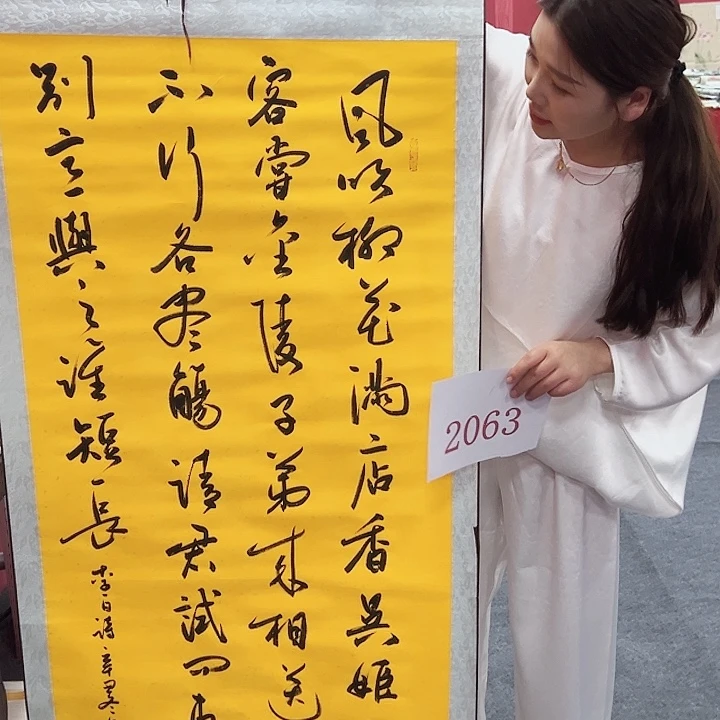 風吹柳花滿店香吳姬
客嘗金陵子弟來相送
不行各盡觴請君試問東
別意與之誰短長
李白詩
2063